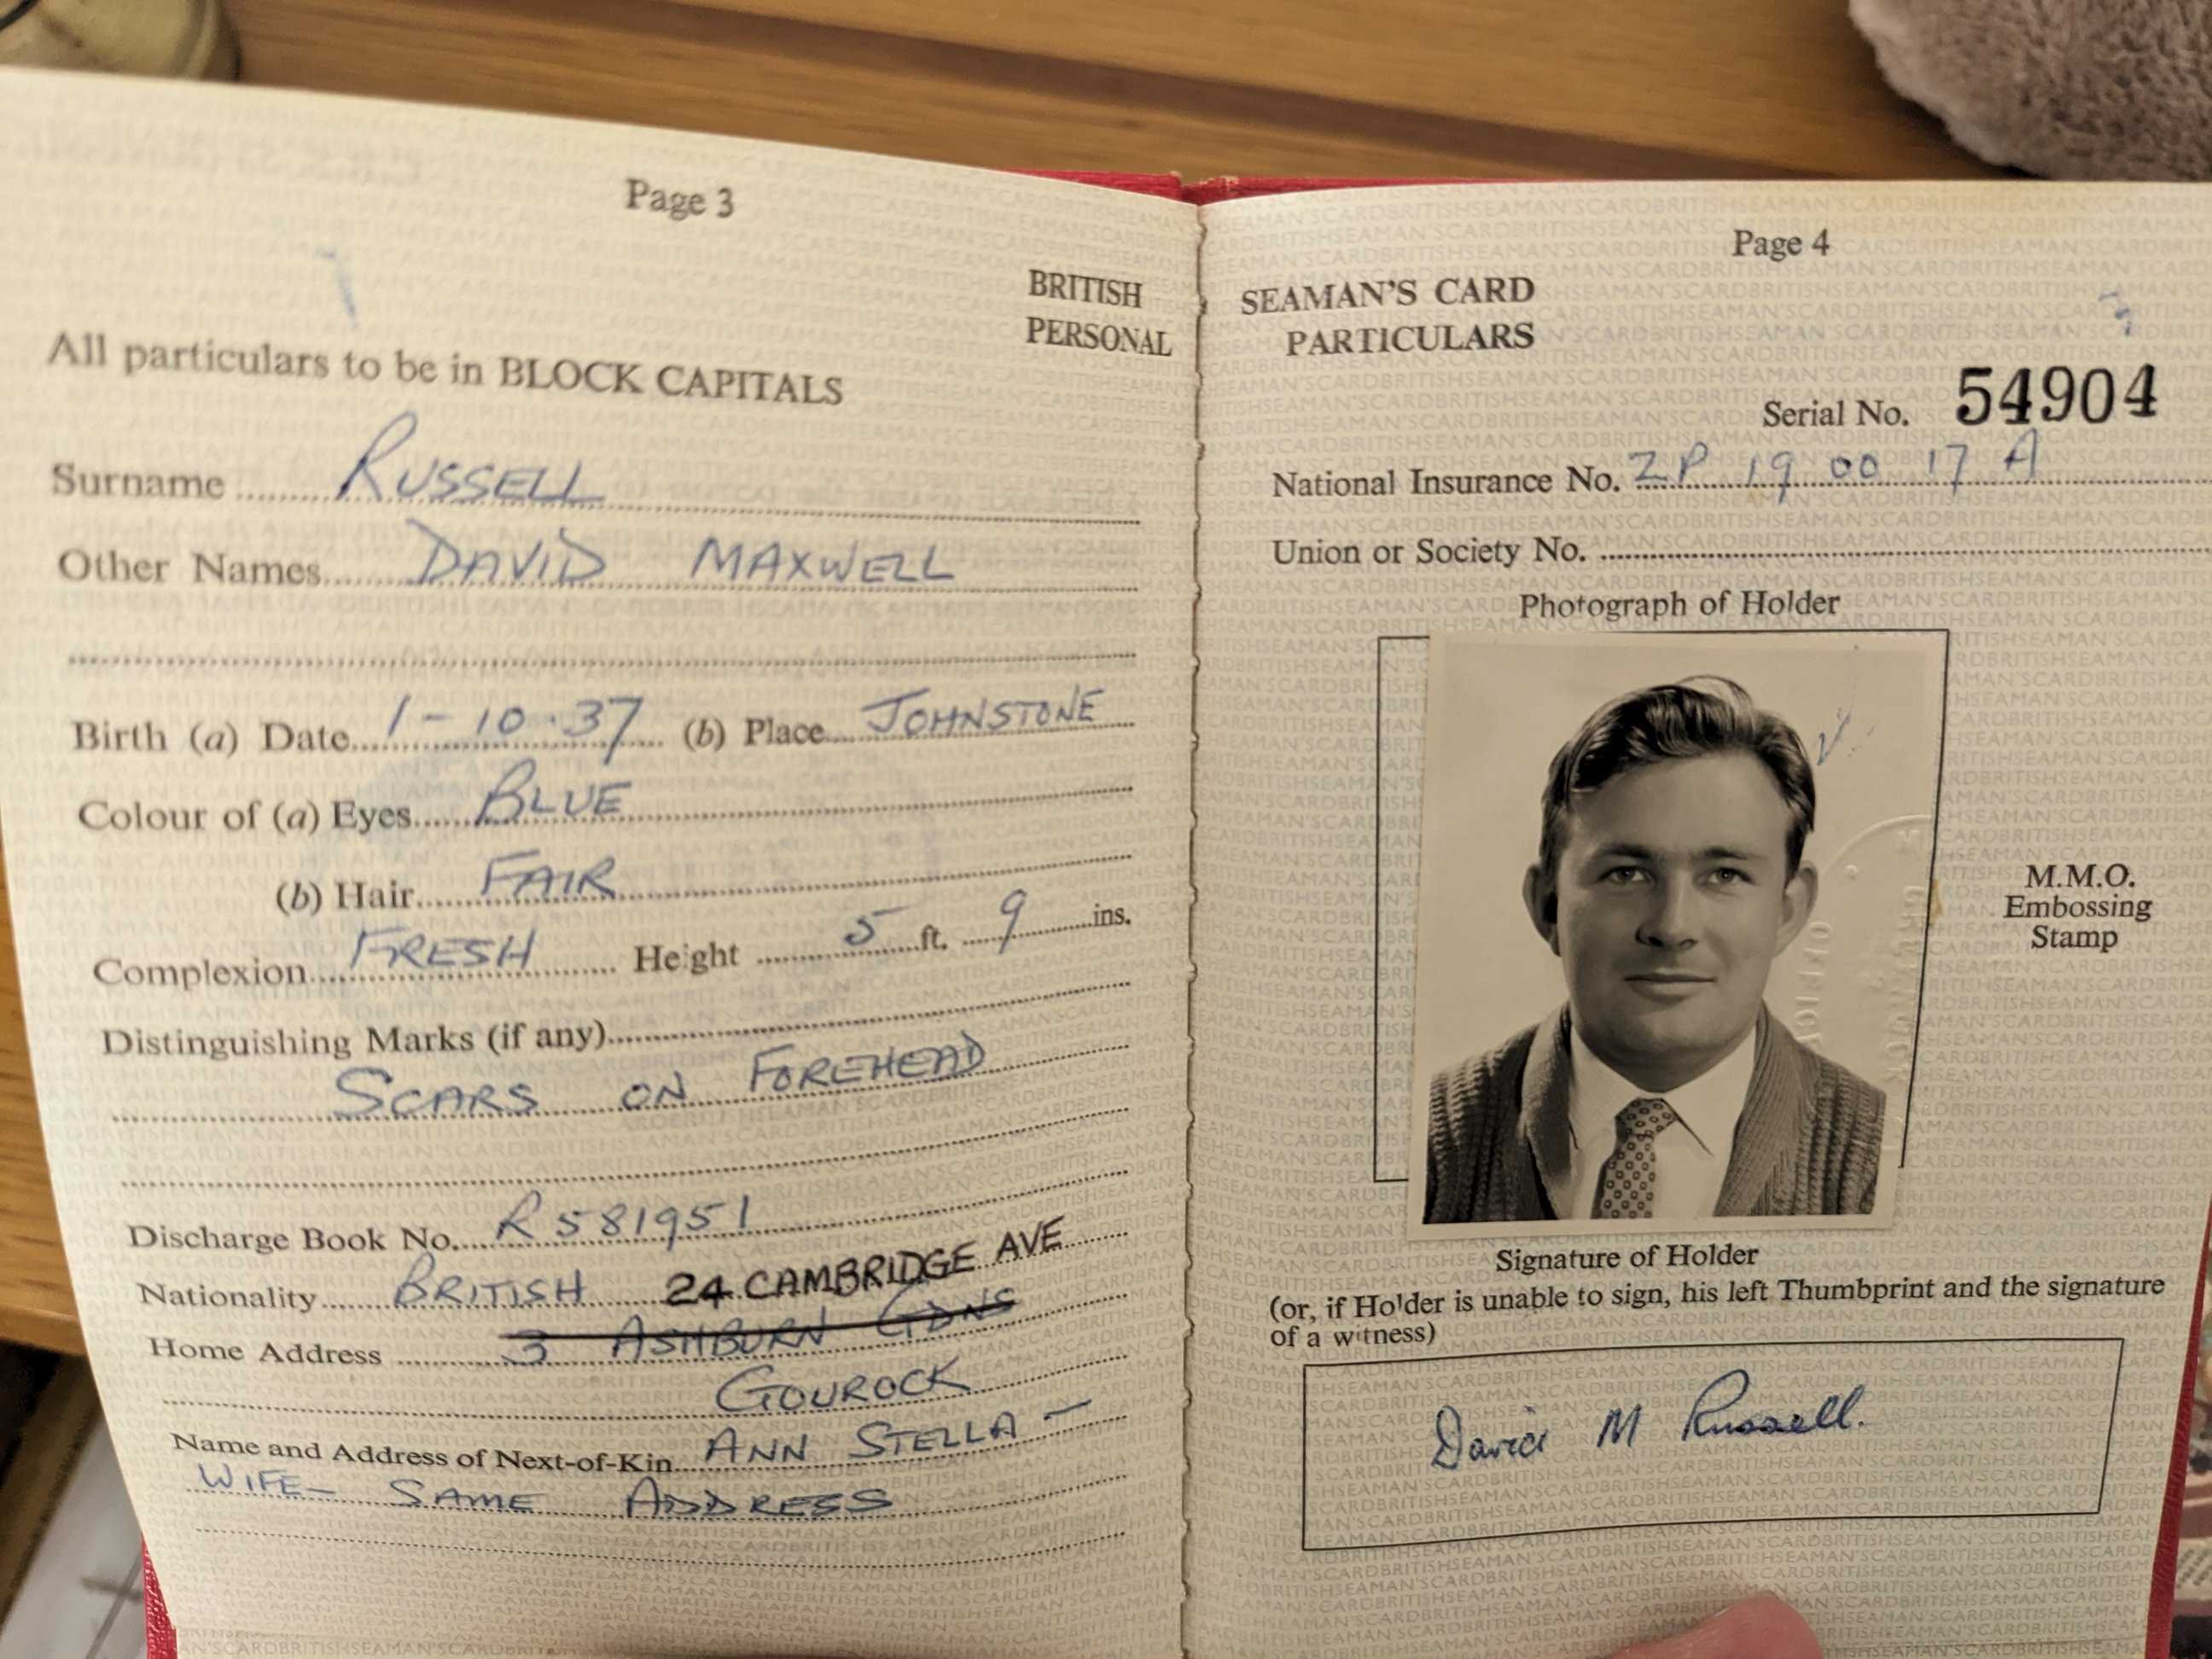 Page 3
BRITISH
PERSONAL
All particulars to be in BLOCK CAPITALS
Surname RUSSELL
Other Names DAVID MAXWELL
Birth (a) Date 1-10-37 (b) Place JOHNSTONE
Colour of (a) Eyes BLUE
(b) Hair FAIR
Complexion FRESH Height 5 ft. 9 ins.
Distinguishing Marks (if any)
SCARS ON FOREHEAD
Discharge Book No. R581951
Nationality BRITISH 24 CAMBRIDGE AVE
Home Address 3 ASHBURN GDNS
GOUROCK
Name and Address of Next-of-Kin ANN STELLA -
WIFE - SAME ADDRESS
Page 4
SEAMAN'S CARD
PARTICULARS
Serial No. 54904
National Insurance No. ZP 19 00 17 A
Union or Society No.
Photograph of Holder
M.M.O.
Embossing
Stamp
Signature of Holder
(or, if Holder is unable to sign, his left Thumbprint and the signature
of a witness)
David M Russell.